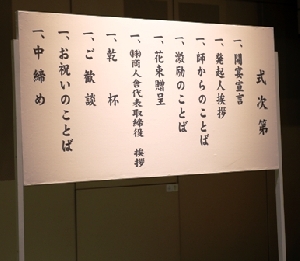 式次第
一、開宴宣言
一、発起人挨拶
一、師からのことば
一、激励のことば
一、花束贈呈
一、㈱岡人會代表取締役 挨拶
一、乾杯
一、ご歓談
一、お祝いのことば
一、中締め